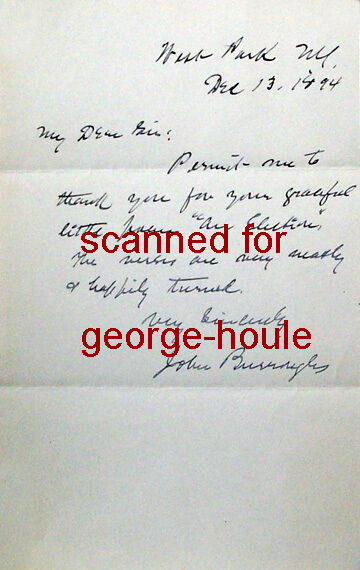 West Park N.Y.
Dec 13, 1894
My Dear Sir:
Permit me to
thank you for your graceful
little poem "An Election".
scanned for
The verses are very neatly
& happily turned.
Very Sincerely
george-houle
John Burroughs